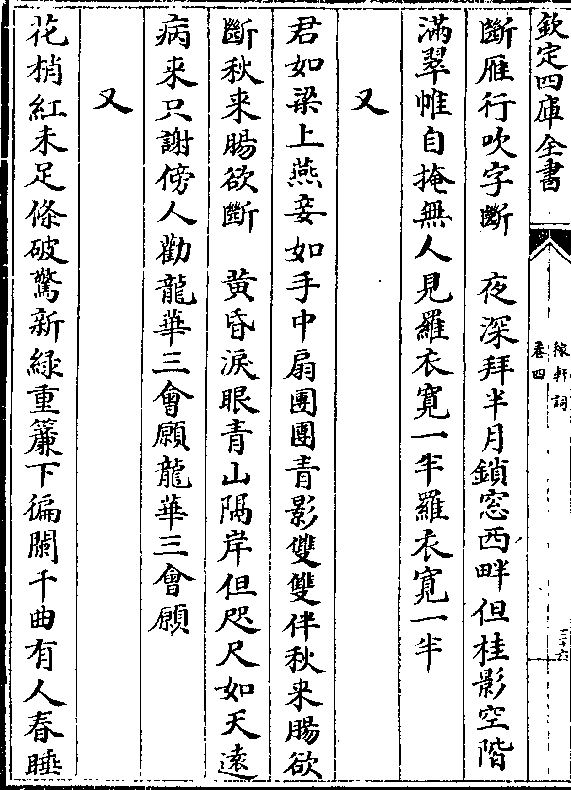 欽定四庫全書
稼軒詞
卷四
三十六
斷雁行吹字斷　夜深拜半月鎖窓西畔但桂影空階
滿翠帷自掩無人見羅衣寛一半羅衣寛一半
又
君如梁上燕妾如手中扇團團青影雙雙伴秋来腸欲
斷秋来腸欲斷　黄昏淚眼青山隔岸但咫尺如天遠
病来只謝傍人勸龍華三會願龍華三會願
又
花梢紅未足條破驚新緑重簾下徧闌干曲有人春睡